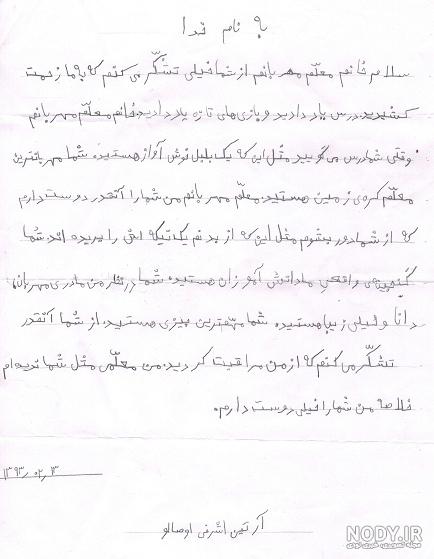 به نام خدا
سلام خانم معلّم مهربانم از شما خیلی تشکّر می کنم که به ما زحمت
کشیدید درس یاد دادید و بازی های تازه یاد دادید. خانم معلّم مهربانم
وقتی شما درس می گویید مثل این که یک بلبل خوش آواز هستید. شما مهربانترین
معلّم کره ی زمین هستید. معلّم مهربانم من شما را آنقدر دوست دارم
که از شما دور بشوم مثل این که از بدنم یک تیکه اش را بریده اند. شما
گنجینه ی واقعی ما دانش آموزان هستید. شما در نظر من مادری مهربان،
دانا و خیلی زیبا هستید. شما مهمّ ترین چیزی هستید. از شما آنقدر
تشکّر می کنم که از من مراقبت کردید. من معلّمی مثل شما ندیده ام
خلاصه من شما را خیلی دوست دارم.
۱۳۹۳/۰۲/۱۳
آرتین اشرفی اوصالو
NODY.IR